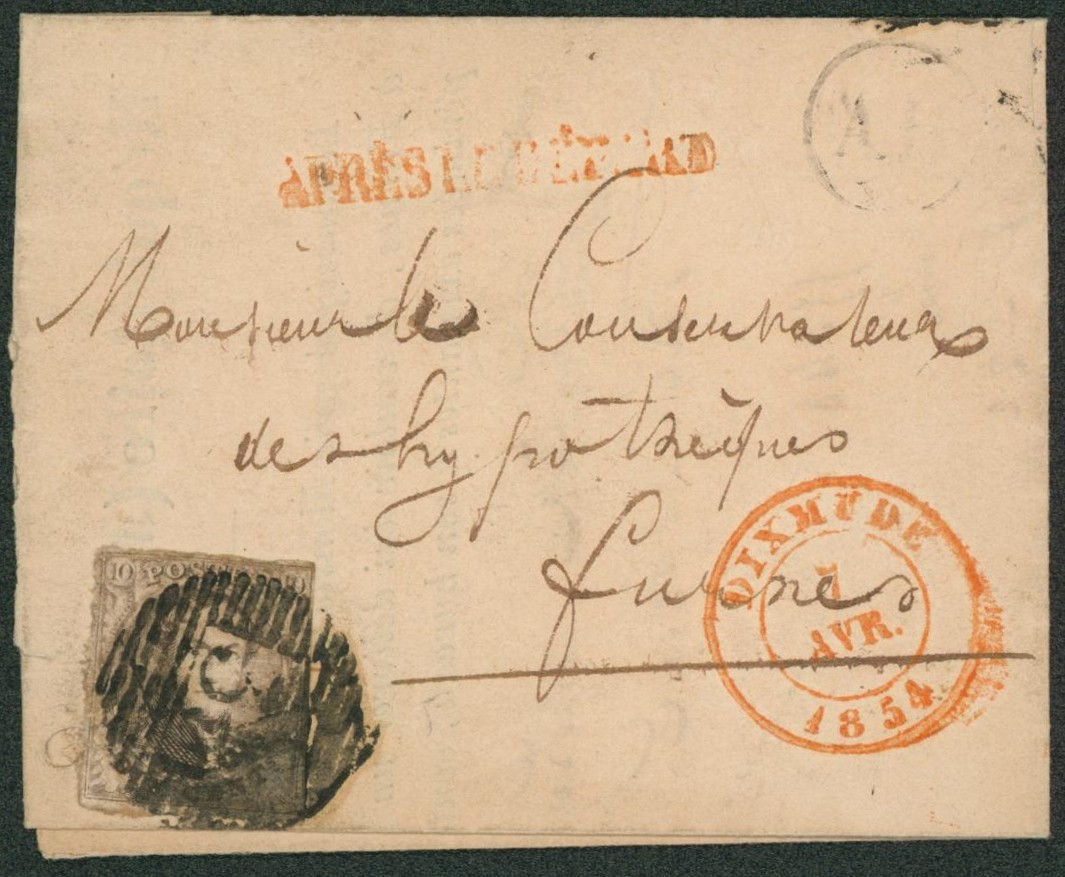 APRÈS LE DÉPART
Monsieur le Conservateur
des hypothèques
furnes
DIXMUDE
7
AVR.
1854
10 POSTES 10